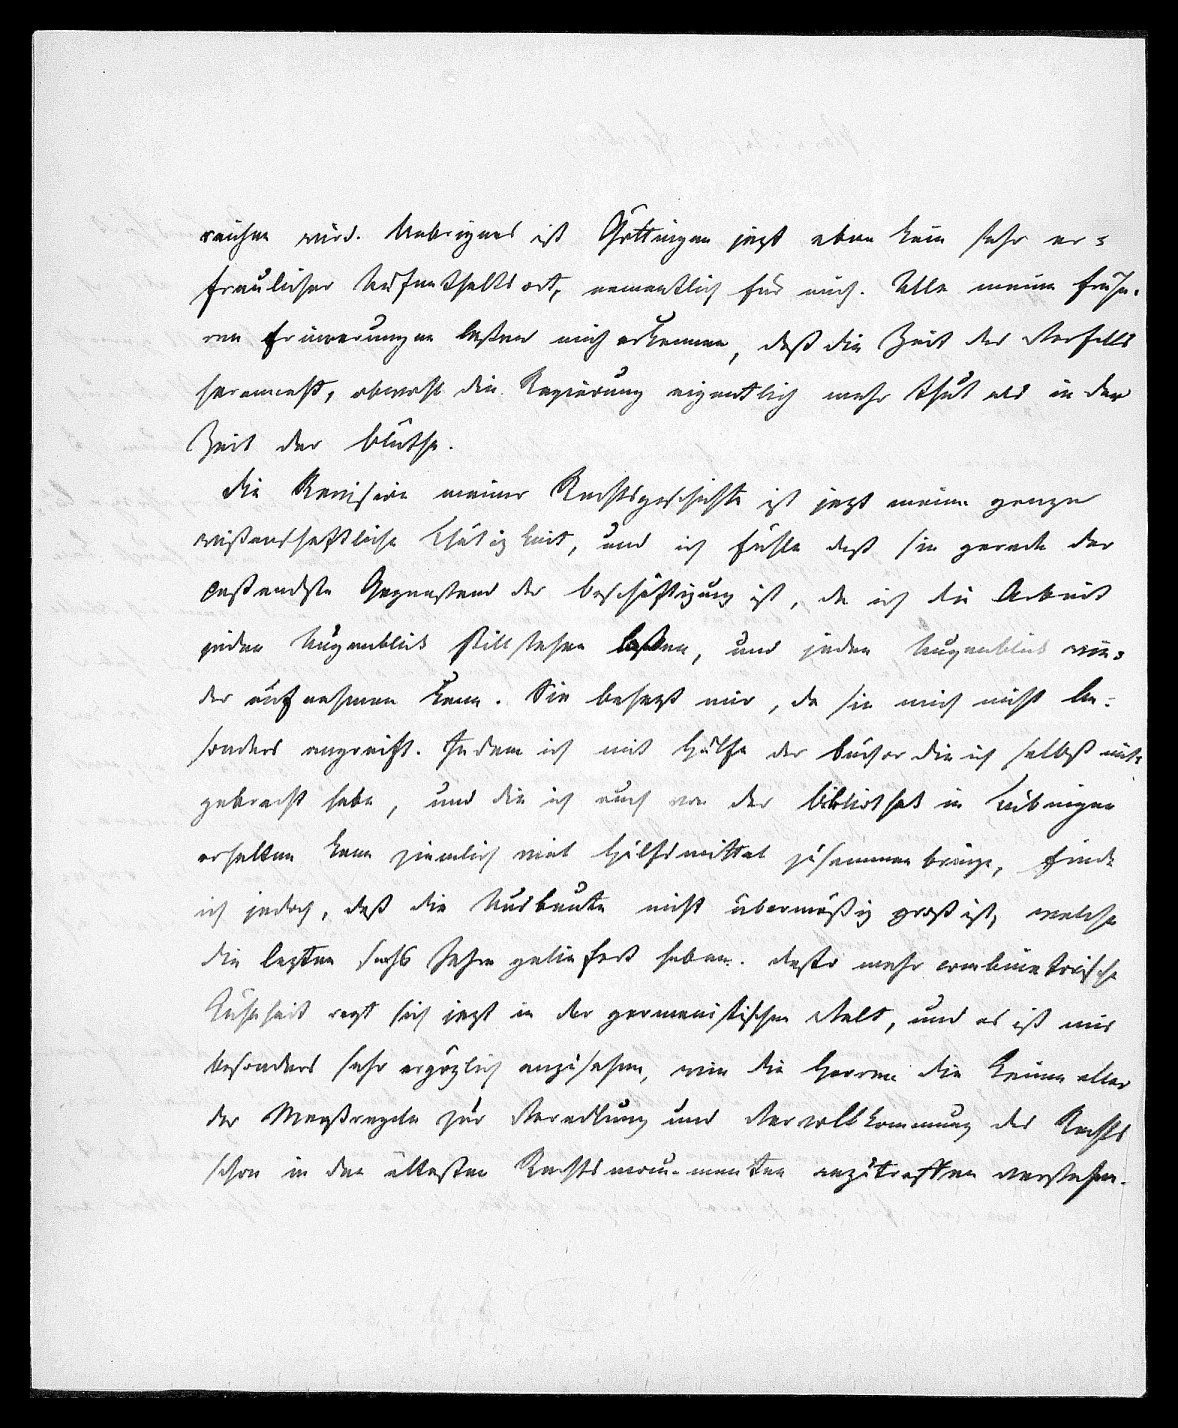 reichen wird. Uebrigens ist Göttingen jezt eben kein sehr er=
freulicher Aufenthaltsort, namentlich für mich. Alle meine frühe=
ren Erinnerungen laßen mich erkennen, daß die Zeit des Verfalls
herannaht, obwohl die Regierung eigentlich mehr thut als in der
Zeit der Blüthe.
Die Revision meiner Rechtsgeschichte ist jezt meine ganze
wißenschaftliche Thätigkeit, und ich fühle daß sie gerade der
paßendste Gegenstand der Beschäftigung ist, da ich die Arbeit
jeden Augenblick still stehen laßen, und jeden Augenblick wie=
der aufnehmen kann. Sie behagt mir, da sie mich nicht be=
sonders angreift. Indem ich mit Hülfe der Bücher die ich selbst mit=
gebracht habe, und die ich auch von der Bibliothek in Tübingen
erhalten kann ziemlich viel Hülfsmittel zusammen bringe, finde
ich jedoch, daß die Ausbeute nicht übermäßig groß ist, welche
die lezten sechs Jahre geliefert haben. Desto mehr combinatorische
Kühnheit regt sich jezt in der germanistischen Welt, und es ist mir
besonders sehr ergözlich anzusehen, wie die Herren die Keime aller
der Maaßregeln zur Veredlung und Vervollkommnung des Rechts
schon in den ältesten Rechtsmonumenten anzutreffen verstehen.